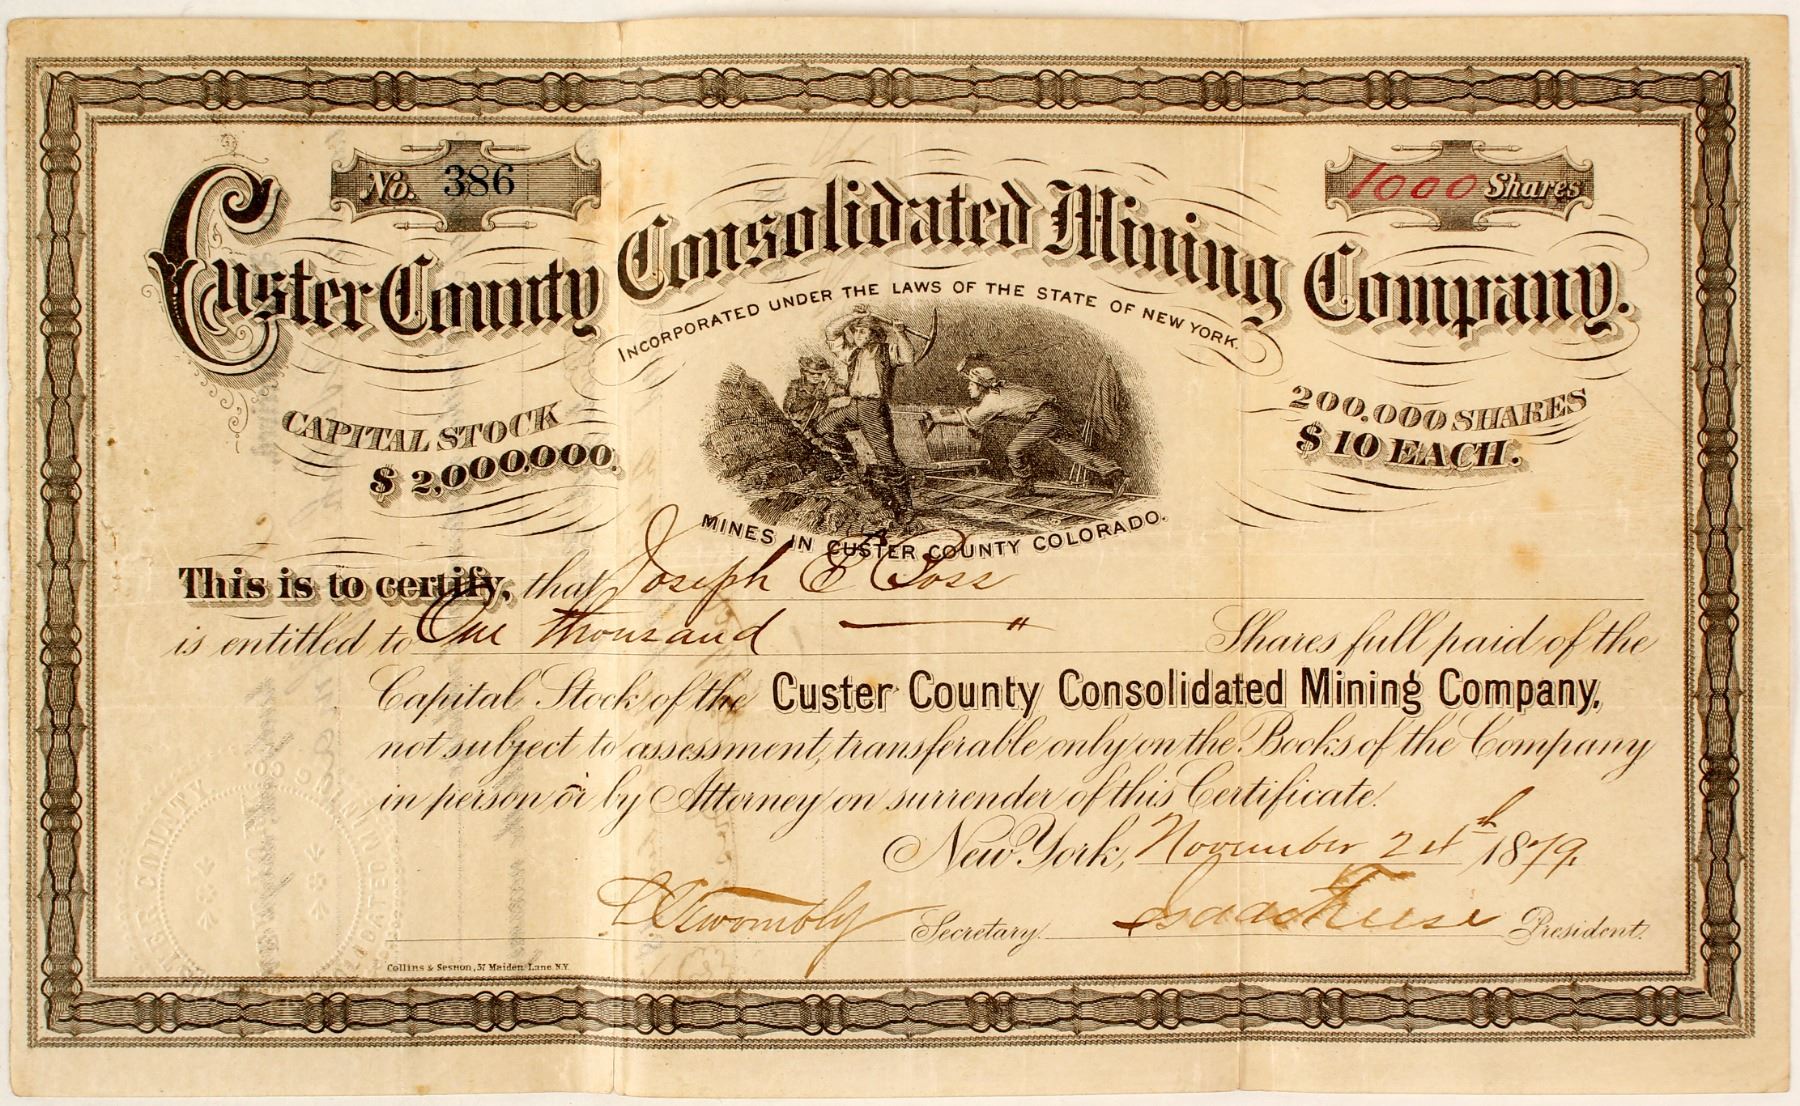 No. 386
1000 Shares
Custer County Consolidated Mining Company.
INCORPORATED UNDER THE LAWS OF THE STATE OF NEW YORK.
CAPITAL STOCK
$ 2,000,000.
200,000 SHARES
$ 10 EACH.
MINES IN CUSTER COUNTY COLORADO.
This is to certify, that Joseph E
is entitled to One thousand " Shares full paid of the
Capital Stock of the Custer County Consolidated Mining Company,
not subject to assessment, transferable only on the Books of the Company
in person or by Attorney on surrender of this Certificate.
New York, November 1879.
Twombly Secretary. Isaac President.
Collins & Sesnon, 57 Maiden Lane N.Y.